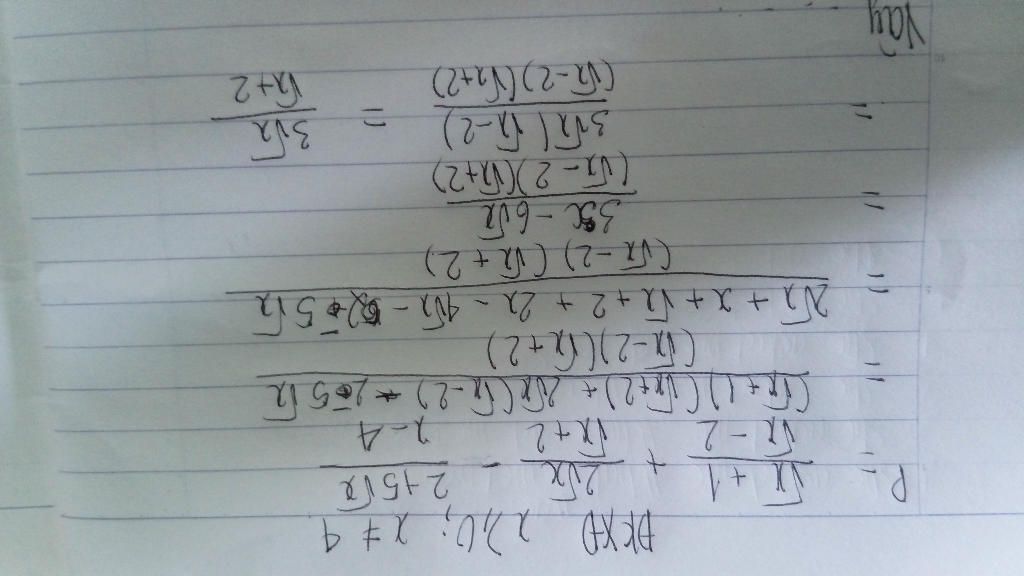 ĐKXĐ x ≥ 0; x ≠ 4
P = \frac{√x + 1}{√x - 2} + \frac{2√x}{√x + 2} - \frac{2 + 5√x}{x - 4}
= \frac{(√x + 1)(√x + 2) + 2√x(√x - 2) - 2 - 5√x}{(√x - 2)(√x + 2)}
= \frac{2√x + x + √x + 2 + 2x - 4√x - 2 - 5√x}{(√x - 2)(√x + 2)}
= \frac{3x - 6√x}{(√x - 2)(√x + 2)}
= \frac{3√x(√x - 2)}{(√x - 2)(√x + 2)} = \frac{3√x}{√x + 2}
Vậy